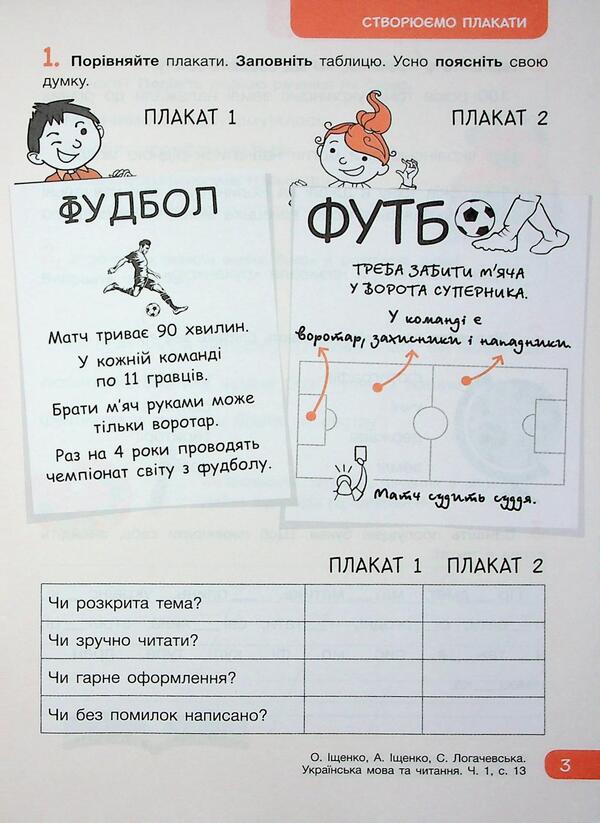 СТВОРЮЄМО ПЛАКАТИ
1. Порівняйте плакати. Заповніть таблицю. Усно поясніть свою
думку.
ПЛАКАТ 1
ПЛАКАТ 2
ФУДБОЛ
Матч триває 90 хвилин.
У кожній команді
по 11 гравців.
Брати м'яч руками може
тільки воротар.
Раз на 4 роки проводять
чемпіонат світу з фудболу.
ФУТБ
ТРЕБА ЗАБИТИ М'ЯЧА
У ВОРОТА СУПЕРНИКА.
У команді є
воротар, захисники і нападники.
Матч судить суддя.
ПЛАКАТ 1 ПЛАКАТ 2
Чи розкрита тема?
Чи зручно читати?
Чи гарне оформлення?
Чи без помилок написано?
О. Іщенко, А. Іщенко, С. Логачевська.
Українська мова та читання. Ч. 1, с. 13
3